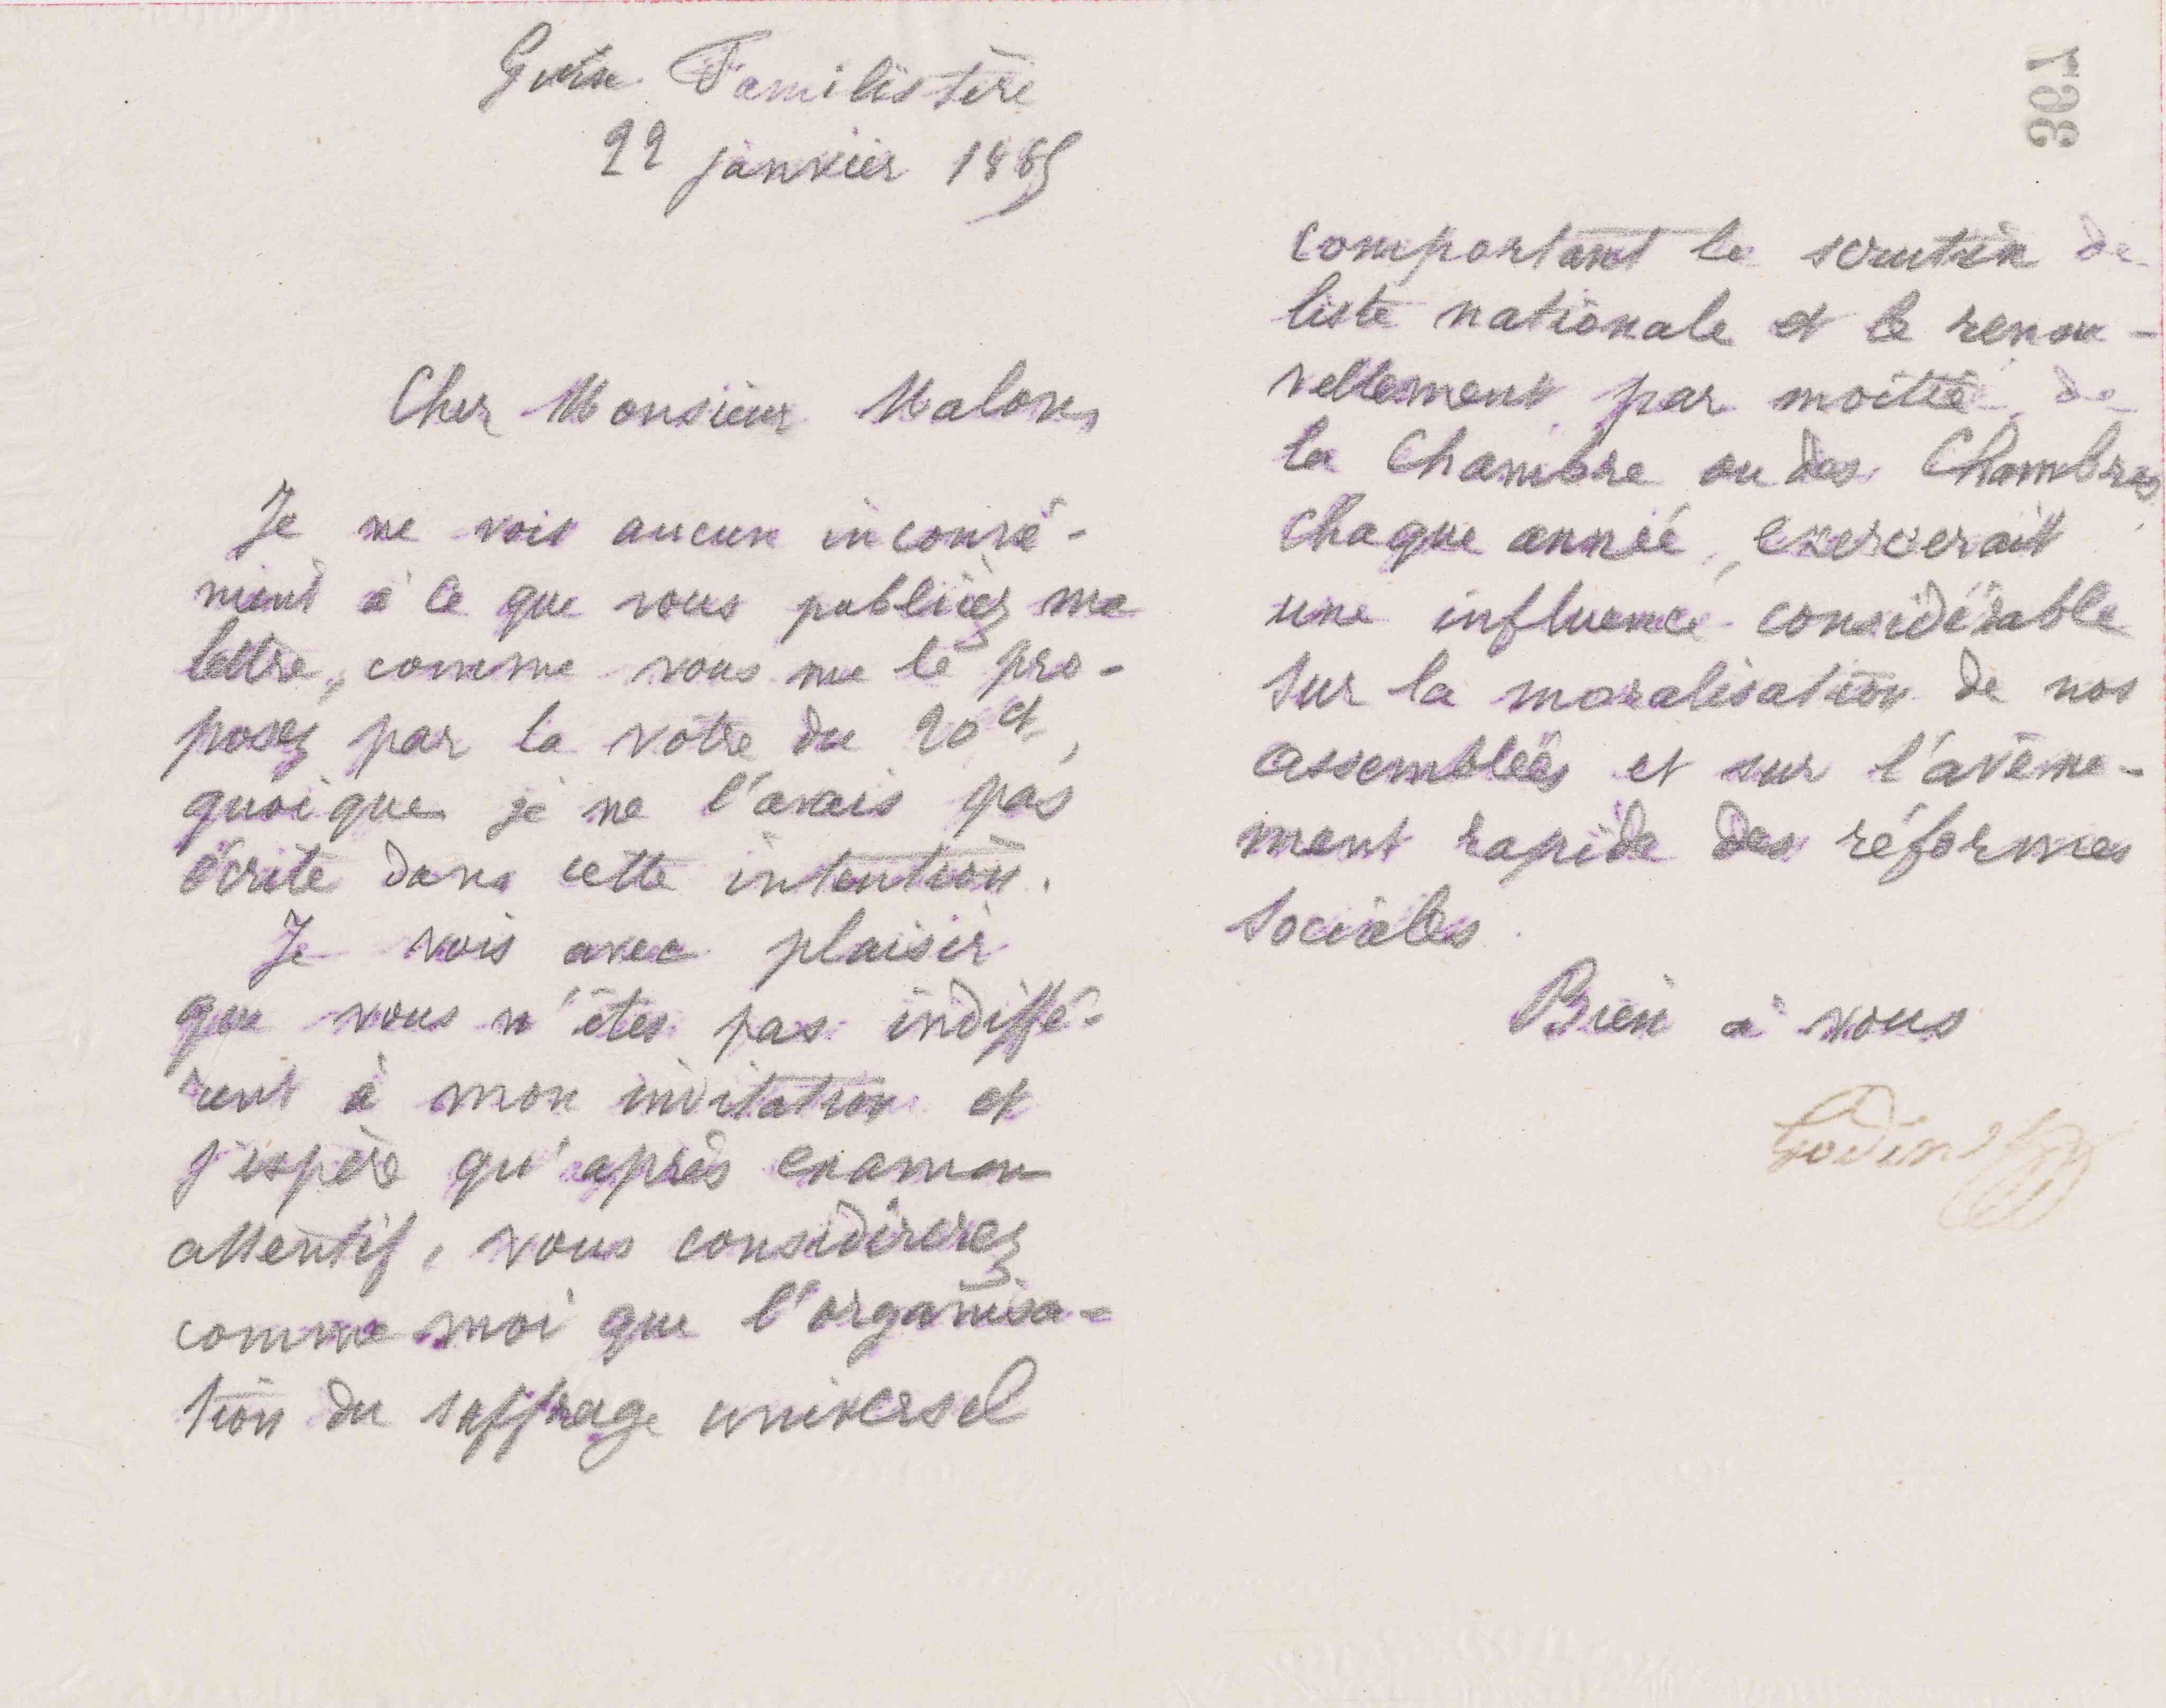 Guise Familistère
22 janvier 1885
Cher Monsieur Malon,
Je ne vois aucun inconvé-
nient à ce que vous publiiez ma
lettre, comme vous me le pro-
posez par la vôtre du 20 ct,
quoique je ne l'avais pas
écrite dans cette intention.
Je vois avec plaisir
que vous n'êtes pas indiffé-
rent à mon invitation et
j'espère qu'après examen
attentif, vous considérerez
comme moi que l'organisa-
tion du suffrage universel
361
comportant le scrutin de
liste nationale et le renou-
vellement par moitié, de
la Chambre ou des Chambres
chaque année, exercerait
une influence considérable
sur la moralisation de nos
assemblées et sur l'avène-
ment rapide des réformes
sociales.
Bien à vous
Godin